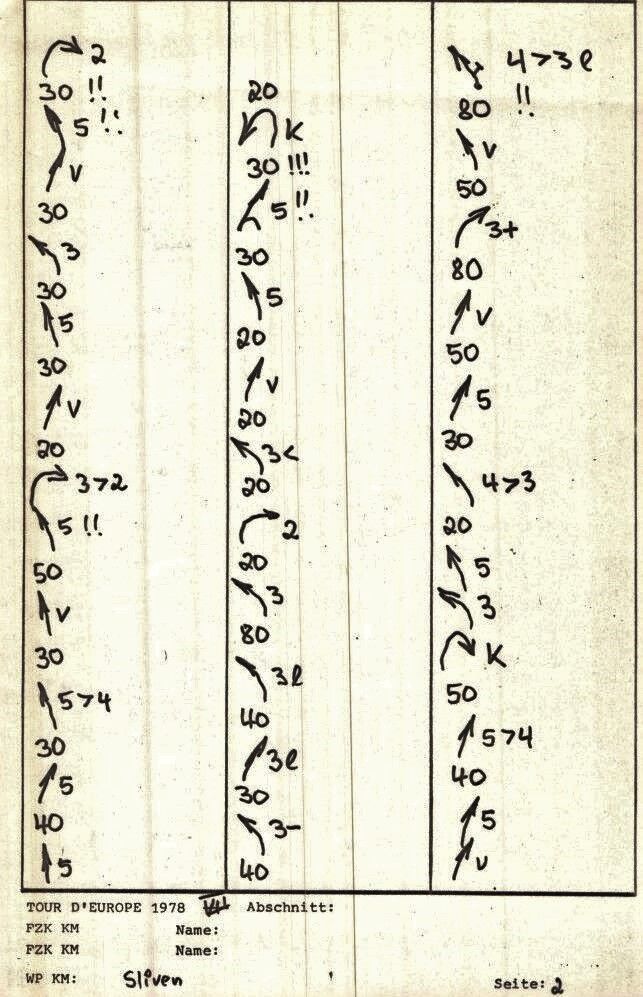 2
30 !!
5 !!
V
30
3
30
5
30
V
20
3>2
5 !!
50
V
30
5>4
30
5
40
5
20
K
30 !!!
5 !!
30
5
20
V
20
3<
20
2
20
3
80
3l
40
3l
30
3-
40
4>3l
80 !!
V
50
3+
80
V
50
5
30
4>3
20
5
3
K
50
5>4
40
5
V
TOUR D'EUROPE 1978 VII Abschnitt:
FZK KM Name:
FZK KM Name:
WP KM: Sliven
Seite: 2